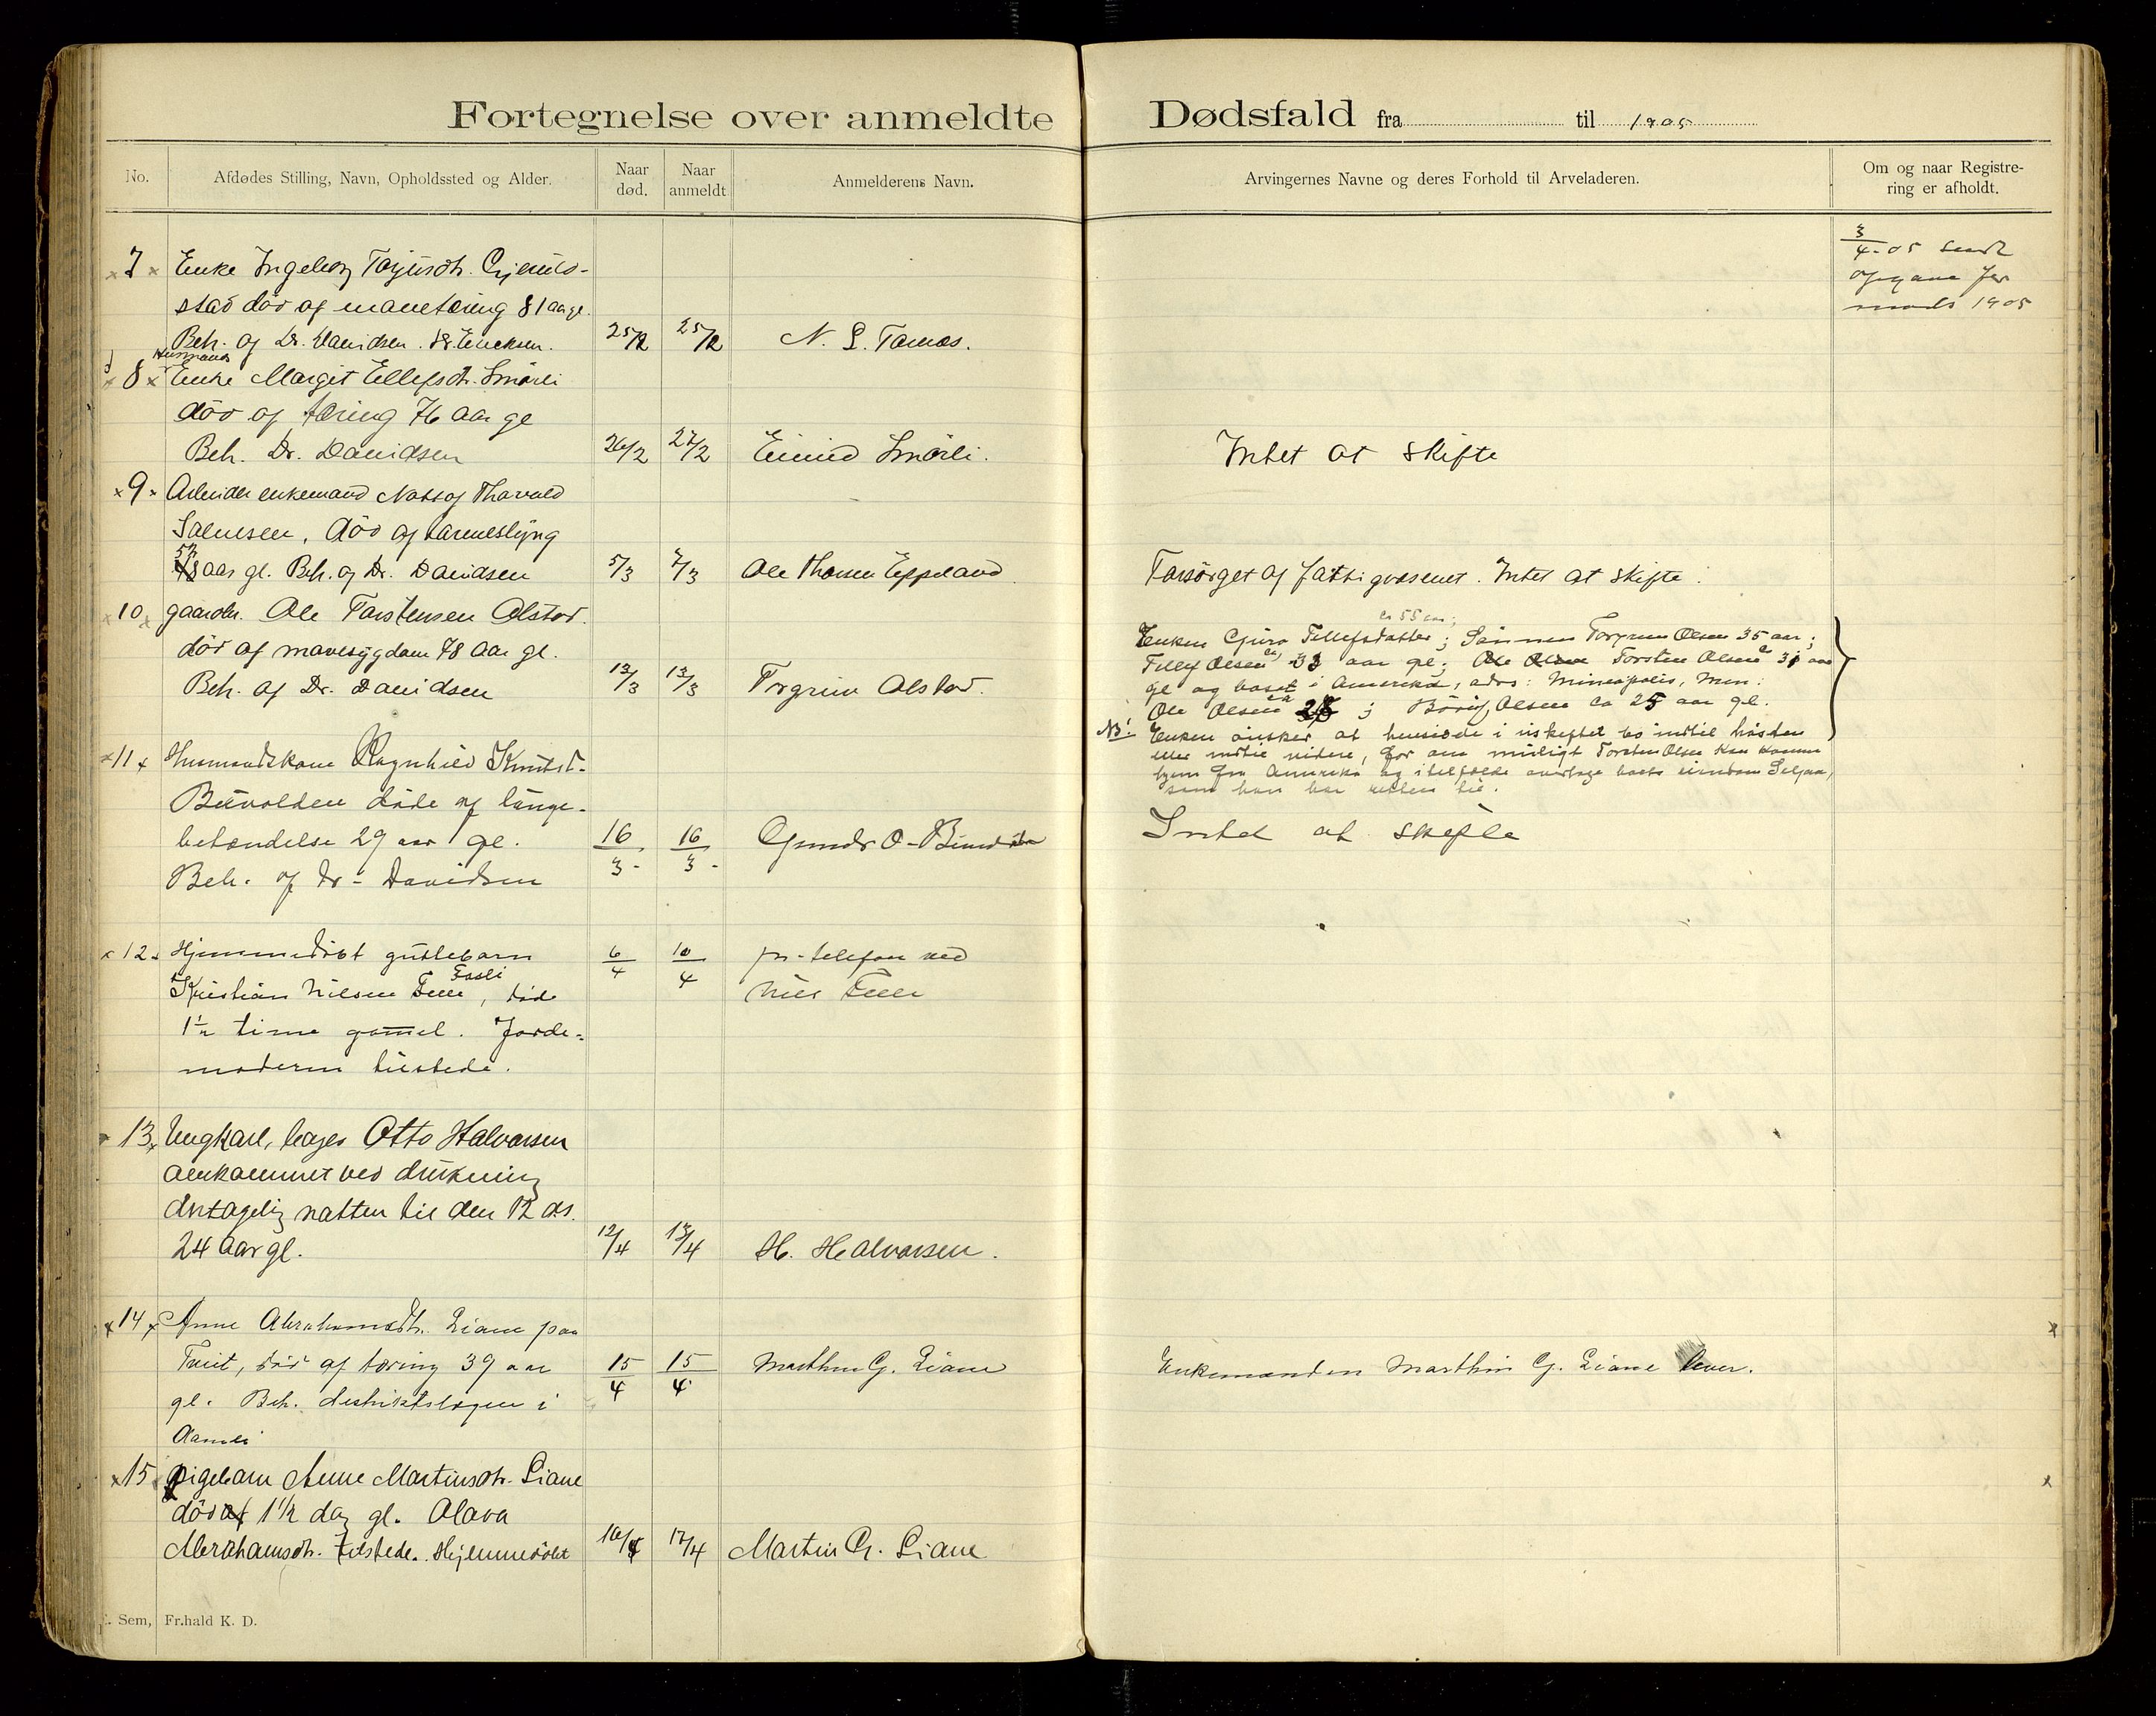 Fortegnelse over anmeldte Dødsfald fra til 1905
No.
Afdødes Stilling, Navn, Opholdssted og Alder.
Naar død.
Naar anmeldt
Anmelderens Navn.
Arvingernes Navne og deres Forhold til Arveladeren.
Om og naar Registrering er afholdt.
3/4-05 sendt
opgave for
1905
7 Enke Ingeborg Terjusdtr.
stad död af mavetæring 81 aar gl.
Beh. af Dr. Davidsen. Dr. Ericksen. 25/2 25/2 N. L. Tornes.
Husmands
8 Enke Margit Ellefsdtr. Smörli
död af tæring 76 aar gl
Beh. Dr. Davidsen 26/2 27/2 Eivind Smörli. Intet at skifte
9 Arbeider enkemand Thorvald
Salvesen, död af tarmeslyng
52
48 aar gl. Beh. af Dr. Davidsen 5/3 7/3 Ole Thorsen Eppeland Forsörget af fattigvæsenet. Intet at skifte.
10 gaardbr. Ole Torstensen Olstad.
död af mavesygdom 78 aar gl.
Beh. af Dr. Davidsen 12/3 13/3 Torgrim Olstad.
ca 55 aar;
Enken Guro Tellefsdatter; Sönnen Torgrim Olsen 35 aar;
Tellef Olsen ca 33 aar gl; Ole Olsen Torsten Olsen ca 31 aar
gl og bosat i Amerika, adrs: Mineapolis, Men:
Ole Olsen ca 28; Olsen ca 25 aar gl.
NB! Enken önsker at hensidde i uskiftet bo indtil hösten
eller indtil videre, for om muligt Torsten Olsen kan komme
hjem fra Amerika og i tilfælde overtage boets eiendom
som han har retten til.
11 Husmandskone Ragnhild Knutsd.
död af lunge-
betændelse 29 aar gl. 16/3- 16/3- Gunder O. Intet at skifte
Beh. af Dr- Davidsen
12 Hjemmedöbt guttebarn 6/4 10/4 pr- telefon ved
Fosli
Kristian Nilsen, död Nils
1½ time gammel. Jorde-
moderen tilstede.
13 Ungkarl, Otto Halvorsen
omkommet ved drukning
antagelig natten til den 12 ds.
24 aar gl. 12/4 13/4 H. Halvorsen.
14 Anne Abrahamsdtr. Liane paa
Tveit, död af tæring 39 aar 15/4 15/4 Marthin G. Liane Enkemanden Marthin G. Liane lever.
gl. Beh. distriktslægen i
Aamli
15 pigebarn Anne Martinsdtr. Liane
död af 1½ dag gl. Olava
Abrahamsdtr. tilstede. Hjemmedöbt 16/4 17/4 Martin G. Liane
Sem, Fr.hald K. D.